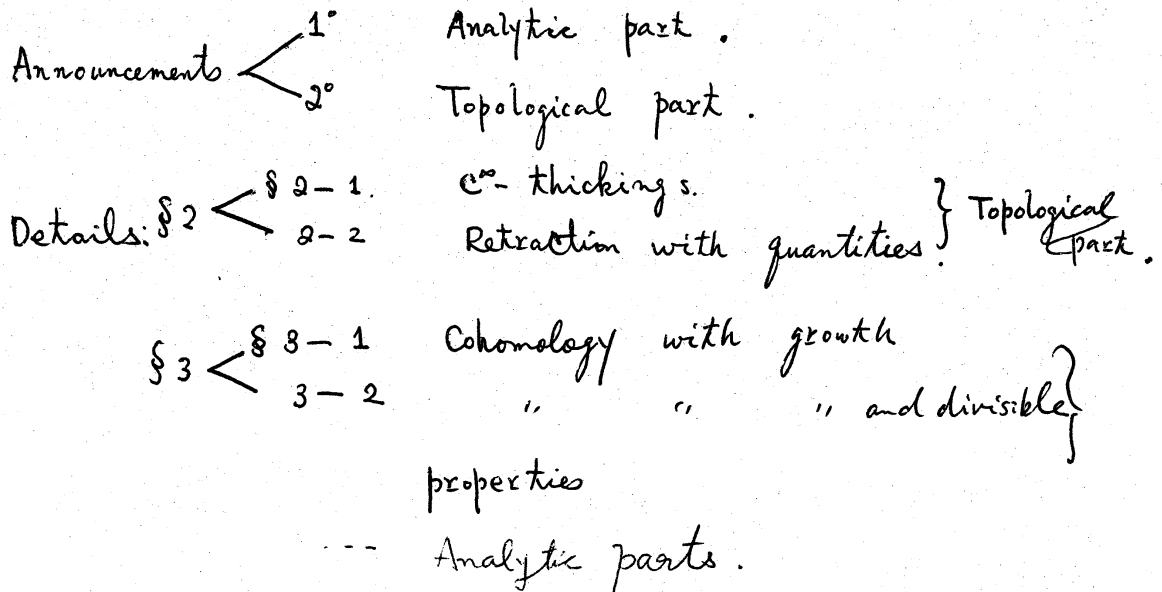 Announcements < 1° Analytic part.
2° Topological part.
Details: § 2 < § 2-1. C^∞- thickings.
2-2 Retraction with quantities. } Topological part.
§ 3 < § 3-1 Cohomology with growth
3-2 " " " and divisible }
properties
--- Analytic parts.